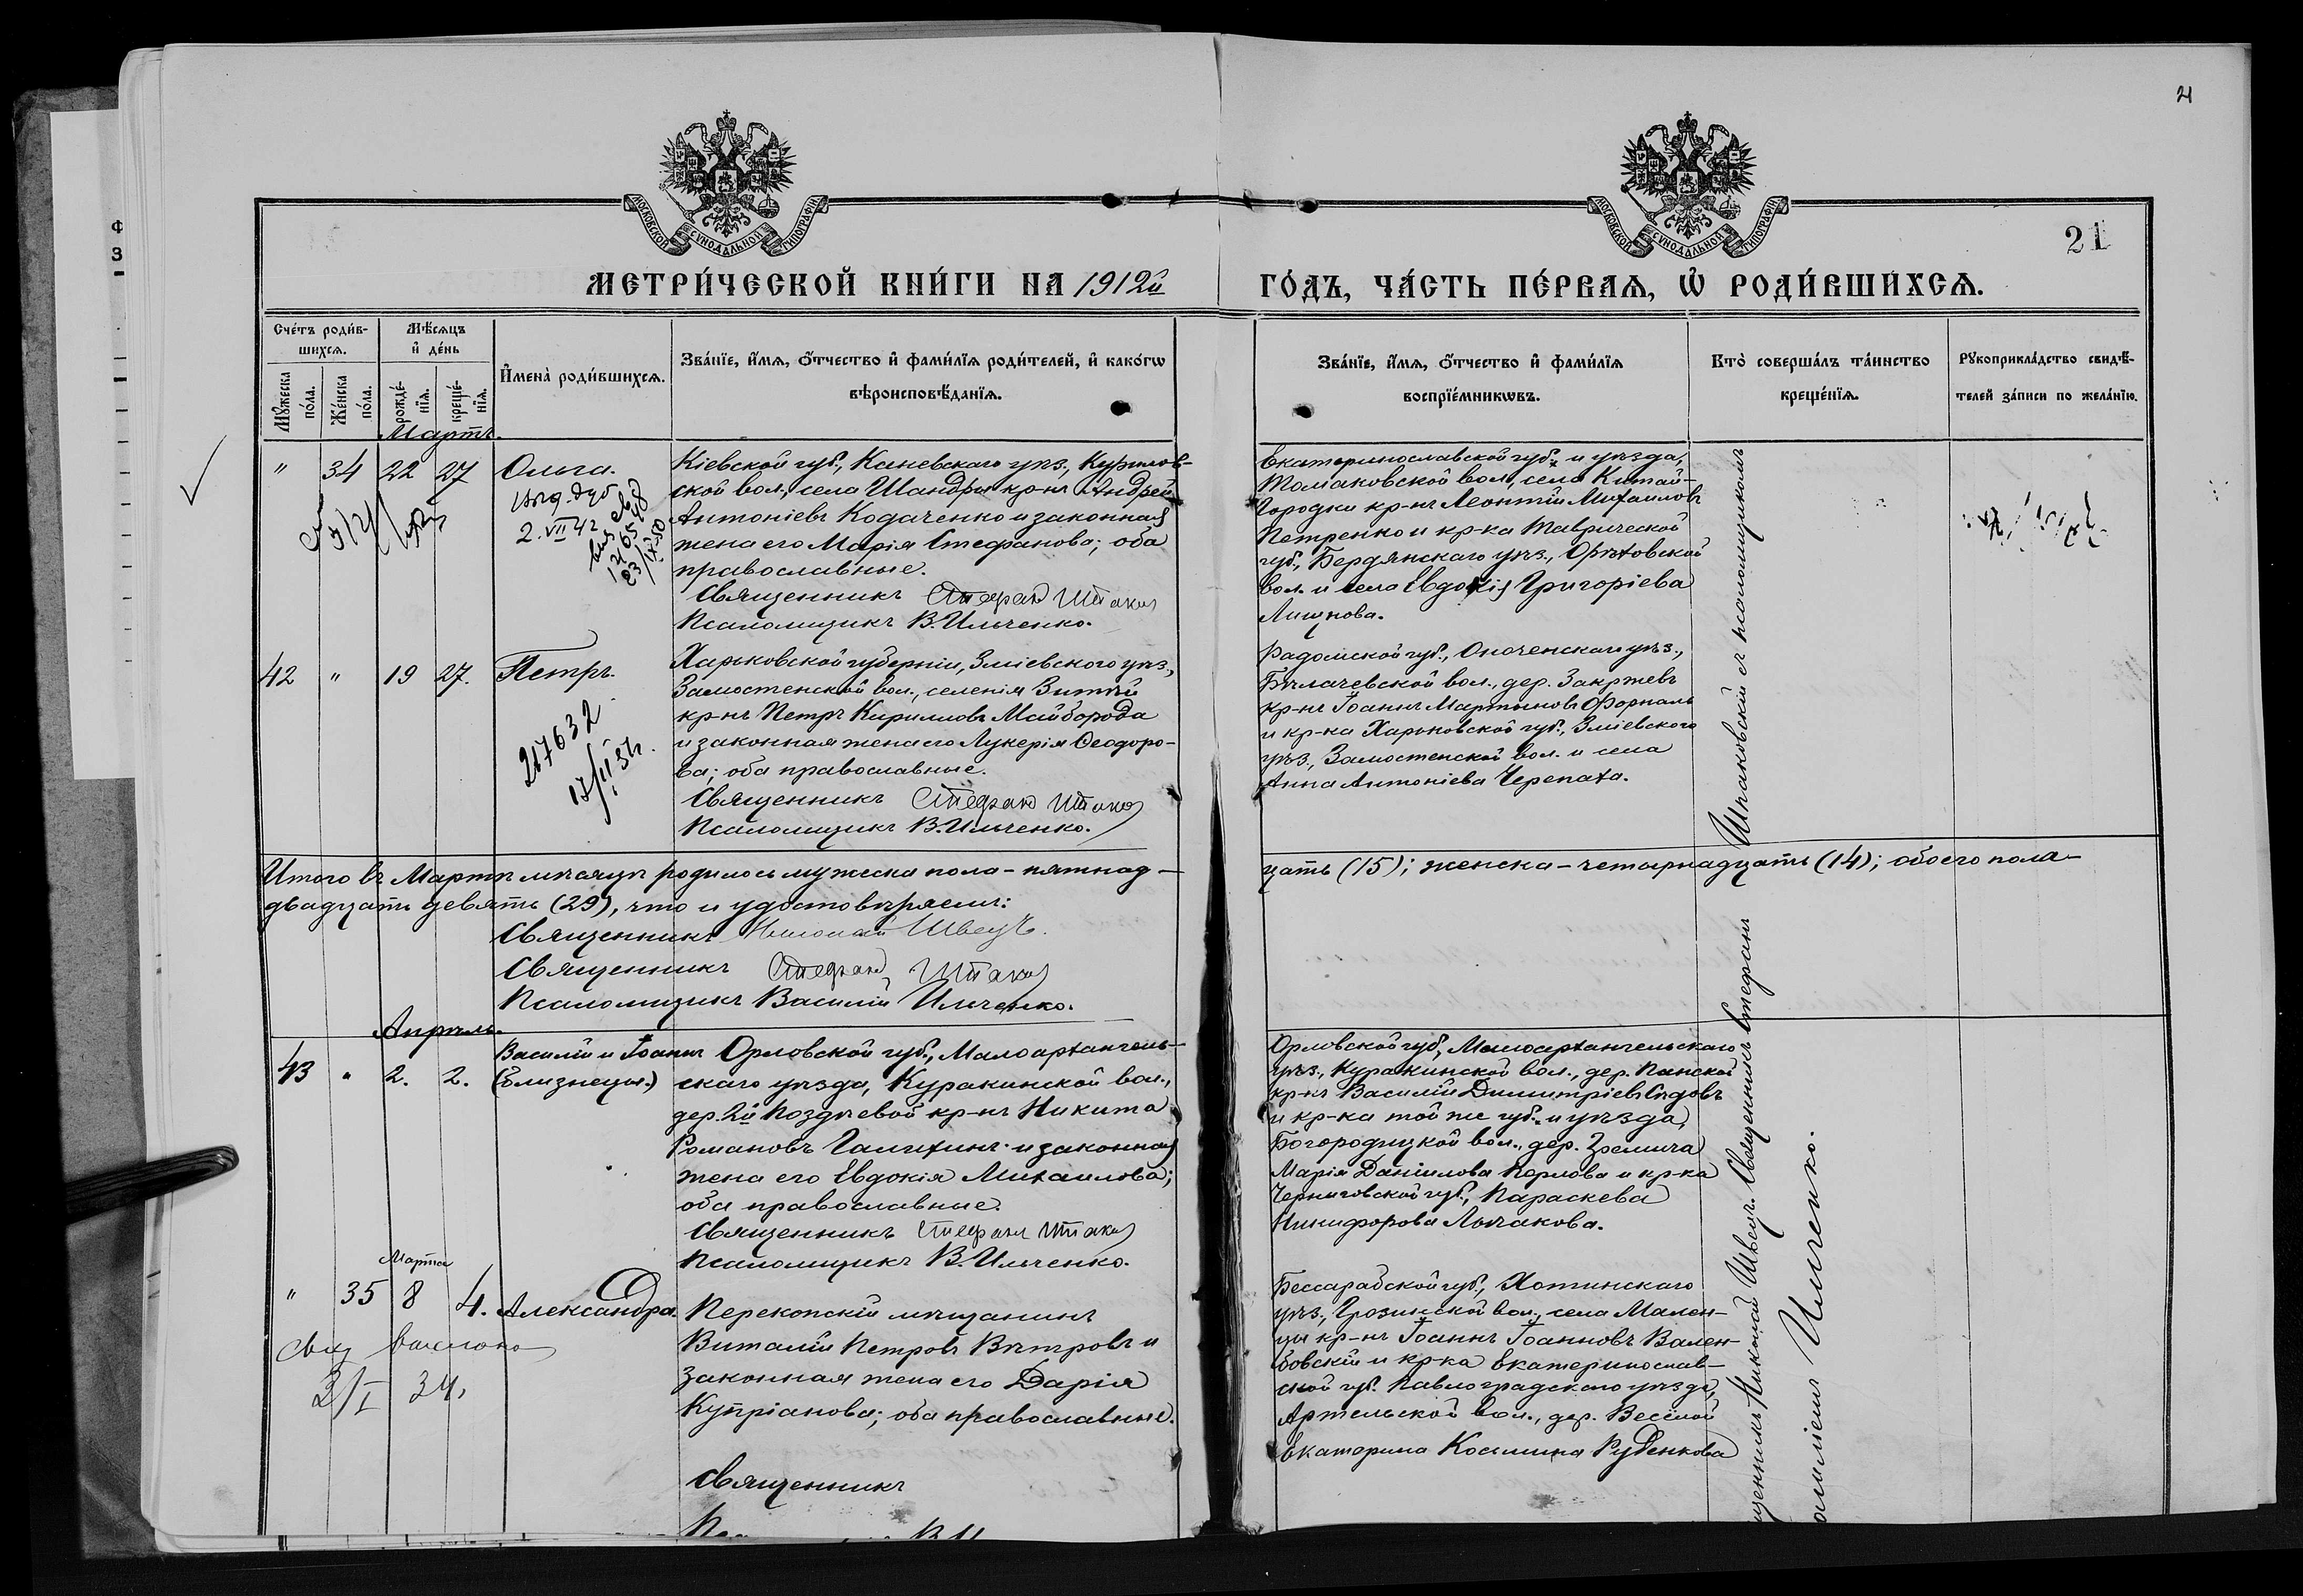 21
21
МОСКОВСКОЙ СѴНОДАЛЬНОЙ ТИПОГРАФІИ
МОСКОВСКОЙ СѴНОДАЛЬНОЙ ТИПОГРАФІИ
МЕТРИ́ЧЕСКОЙ КНИ́ГИ НА 1912й
ГО́ДЪ, ЧА́СТЬ ПЕ́РВАѦ, Ѡ҆ РОДИ́ВШИХСѦ.
Сче́тъ роди́в-
шихсѧ.
Мѣ́сѧцъ
и҆ де́нь
Мꙋ́жеска по́ла.
Же́нска по́ла.
рожде́-нїѧ.
креще́-нїѧ.
И҆мена̀ роди́вшихсѧ.
Зва́нїе, и҆́мѧ, ѻ҆́тчество и҆ фами́лїѧ роди́телей, и҆ како́гѡ
вѣроисповѣ́данїѧ.
Зва́нїе, и҆́мѧ, ѻ҆́тчество и҆ фами́лїѧ
воспрїе́мникѡвъ.
Кто̀ соверша́лъ та́инство
креще́нїѧ.
Рꙋкоприкла́дство свидѣ́-
телей за́писи по жела́нїю.
Мартъ.
" 34 22 27 Ольга.
2.VII 42
Кіевской губ., Каневскаго уѣз., Курилов-
ской вол., села Шандры кр-нъ Андрей
Антоніевъ Кодаченко и законная
жена его Марія Стефанова; оба
православные.
Священникъ Стефанъ
Псаломщикъ В. Ильченко.
Екатеринославской губ. и уѣзда,
Томаковской вол., села Китай-
Городки кр-нъ Леонтій Михаиловъ
Петренко и кр-ка Таврической
губ., Бердянскаго уѣз., Орѣховской
вол. и села Евдокія Григоріева
42 " 19 27. Петръ.
217632
Харьковской губерніи, Зміевского уѣз.,
Замостенской вол., селенія
кр-нъ Петръ Кирилловъ Майборода
и законная жена его Лукерія Ѳеодоро-
ва; оба православные.
Священникъ Стефанъ
Псаломщикъ В. Ильченко.
Радомской губ., Опоченскаго уѣз.,
дер. Закржевъ
кр-нъ Іоаннъ Мартыновъ Форналь
и кр-ка Харьковской губ., Зміевского
уѣз., Замостенской вол. и села
Анна Антоніева Черепаха.
Итого въ Мартѣ мѣсяцѣ родилось мужеска пола – пятнад-
цать (15); женска – четырнадцать (14); обоего пола –
двадцать девять (29), что и удостовѣряемъ:
Священникъ Николай Швецъ.
Священникъ Стефанъ
Псаломщикъ Василій Ильченко.
Апрѣль.
43 " 2. 2. Василій и Іоаннъ
(близнецы.)
Орловской губ., Малоархангель-
скаго уѣзда, Куракинской вол.,
дер. 2й Поздѣевой кр-нъ Никита
Романовъ Галихинъ и законная
жена его Евдокія Михаилова;
оба православные.
Священникъ Стефанъ
Псаломщикъ В. Ильченко.
Орловской губ., Малоархангельскаго
уѣз., Куракинской вол., дер. Панской
кр-нъ Василій Димитріевъ Сѣдовъ
и кр-ка той же губ. и уѣзда,
Богородицкой вол., дер.
Марія Даніилова Карлова и кр-ка
Черниговской губ., Параскева
Никифорова
Марта
" 35 8 4. Александра.
Перекопскій мѣщанинъ
Виталій Петровъ Вѣтровъ и
законная жена его Дарія
Купріанова; оба православные.
Священникъ
Бессарабской губ., Хотинскаго
уѣз., вол., села Мален-
цы кр-нъ Іоаннъ Іоанновъ Вален-
бовскій и кр-ка Екатеринослав-
ской губ. Павлоградскаго уѣзда,
Артельской вол., дер. Веселой
Екатерина Косьмина Руденкова
Николай Швецъ. Священникъ Стефанъ Шпаковскій съ псаломщикомъ
Ильченко.